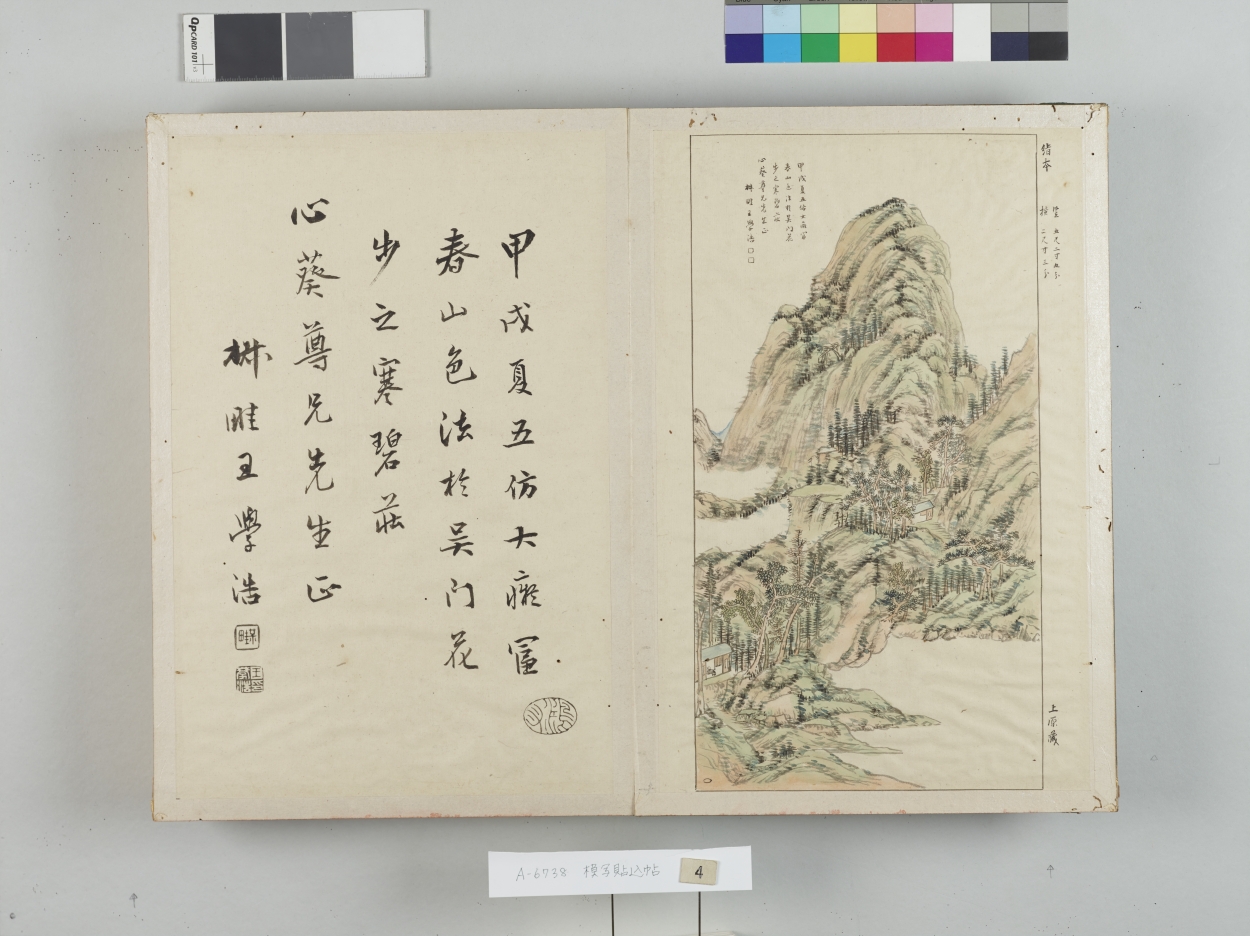 QPCARD 101
甲戌夏五仿大癡富
春山色法於吴门花
步之寒碧莊
心葵尊兄先生正
楙畦王學浩
甲戌夏五仿大癡富
春山色法於吴门花
步之寒碧莊
心葵尊兄先生正
楙畦王學浩
絹本
竪 五尺二寸五分
横 二尺寸三分
上原藏
A-6738 模写貼込帖
4